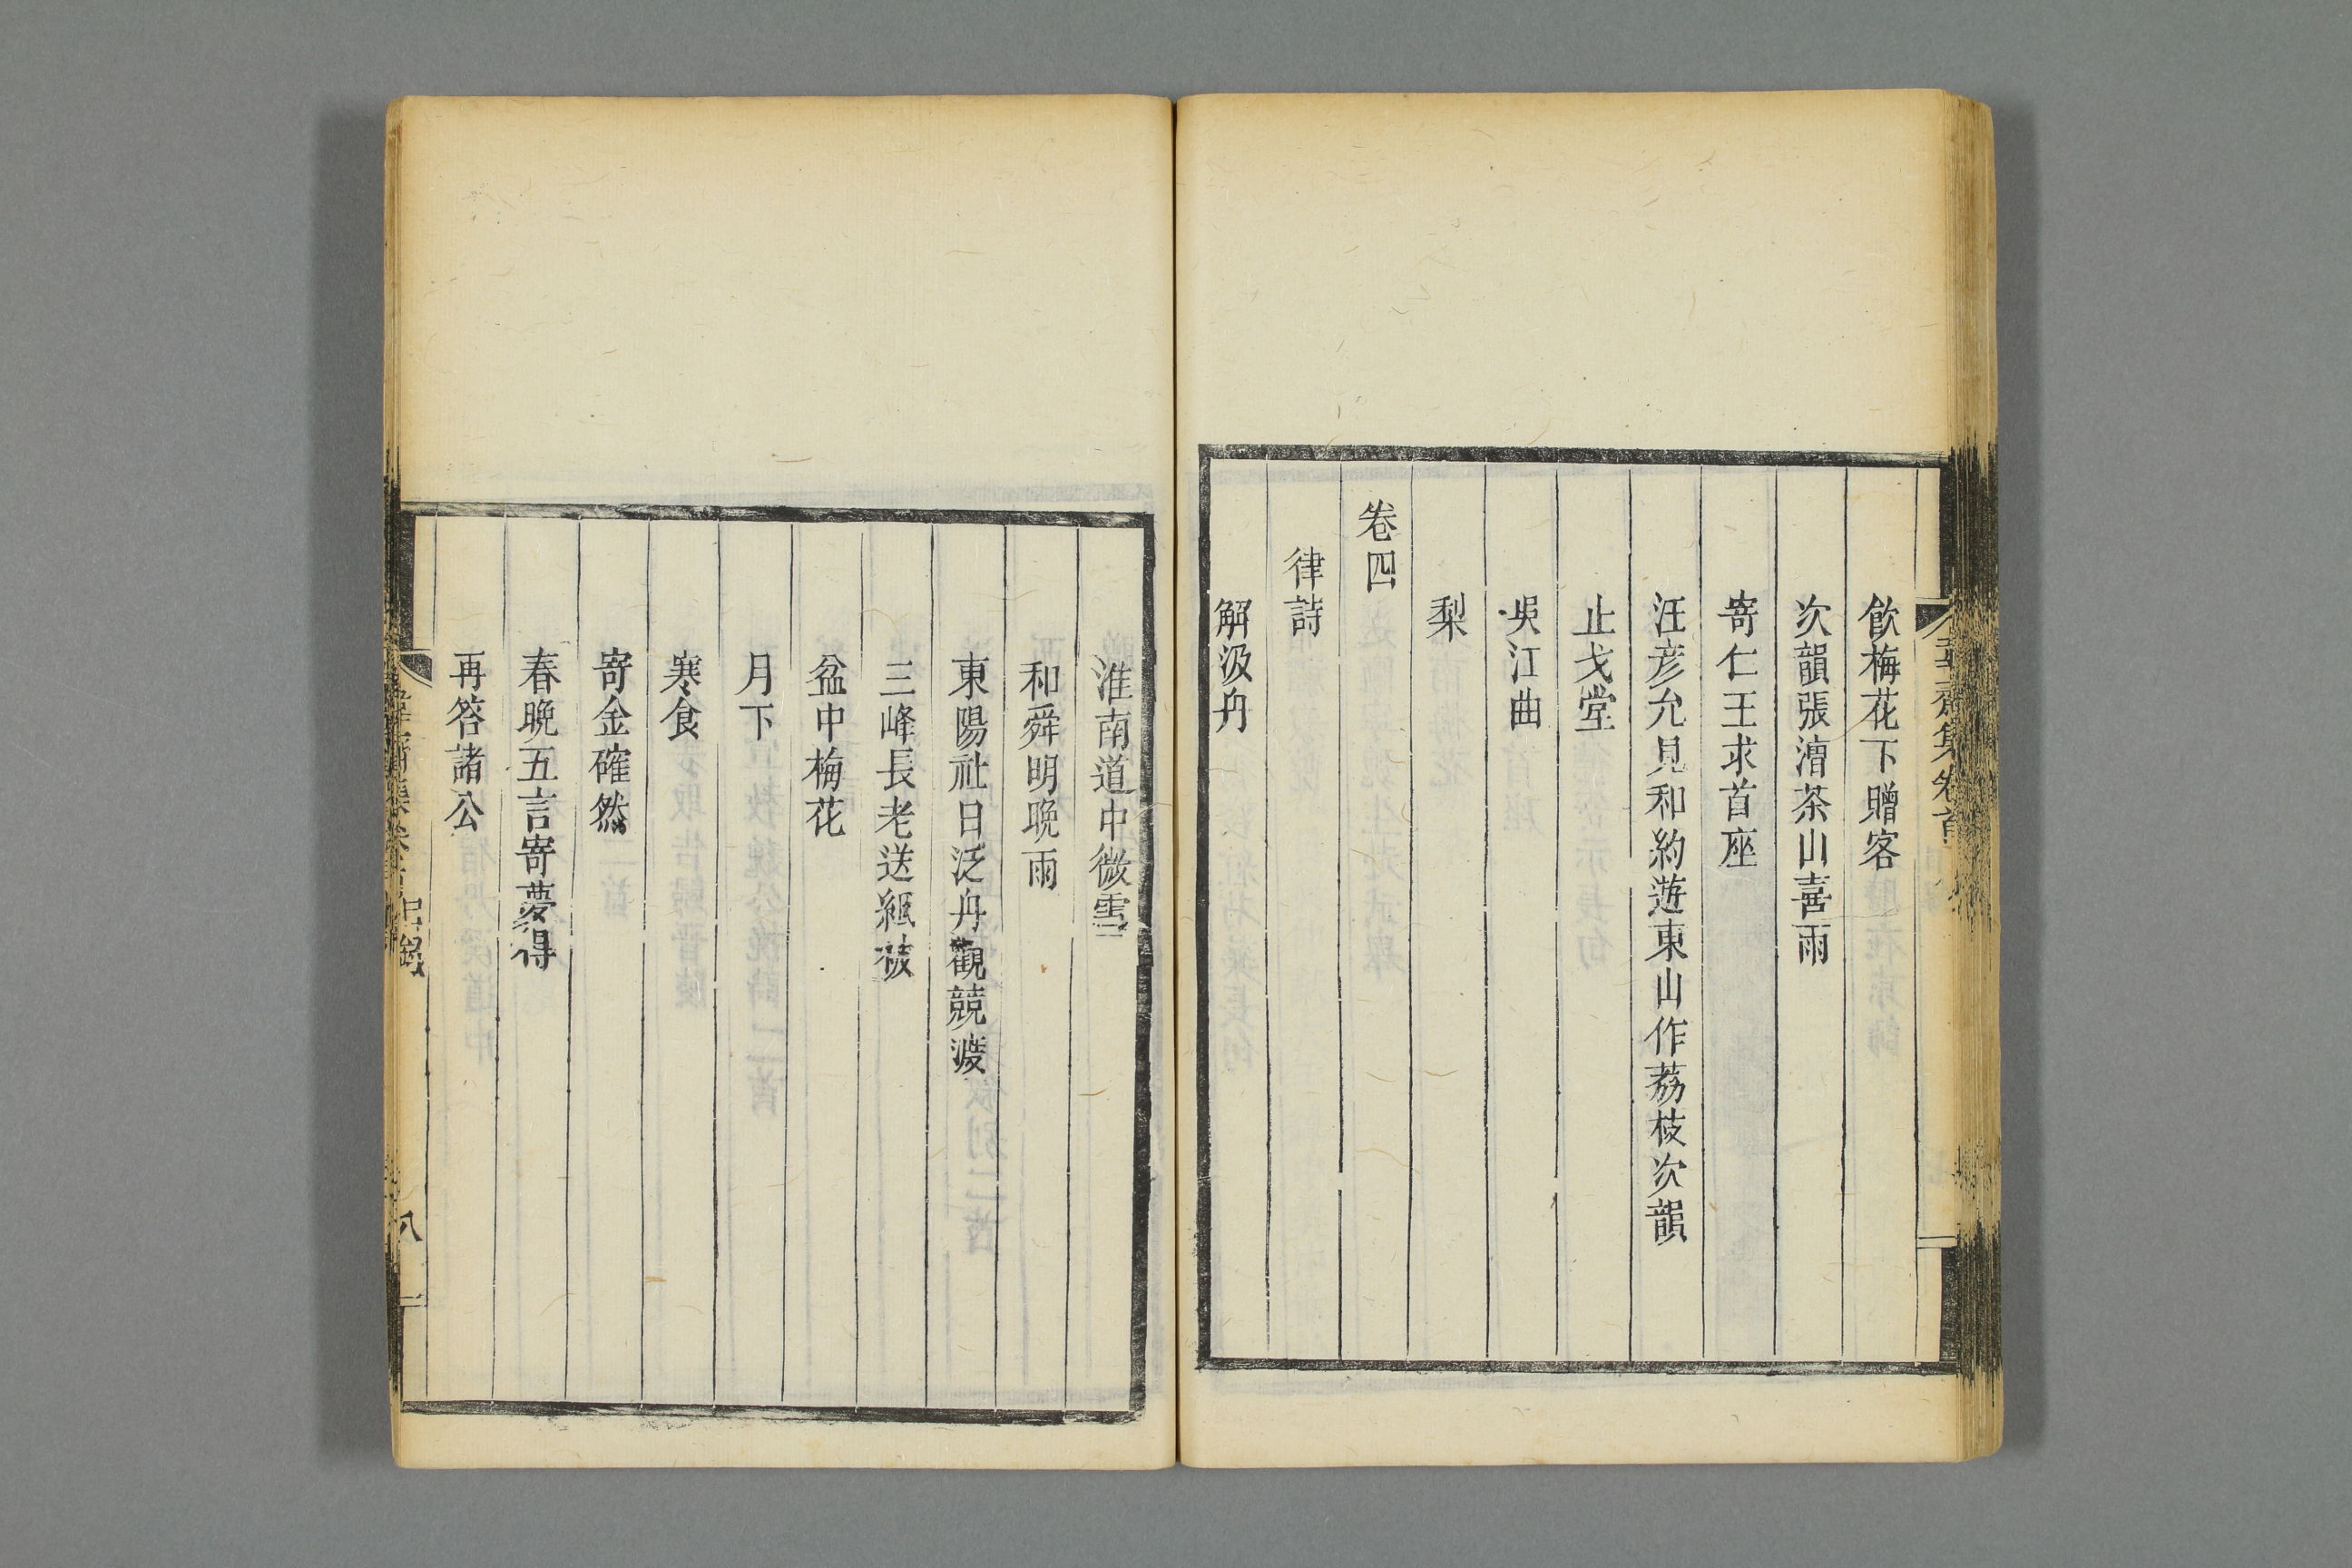 飲梅花下贈客
次韻張漕茶山喜雨
寄仁王求首座
汪彦允見和約遊東山作荔枝次韻
止戈堂
吳江曲
梨
卷四
律詩
解汲舟
淮南道中微雪
和舜明晚雨
東陽社日泛舟觀競渡
三峰長老送紙被
盆中梅花
月下
寒食
寄金確然
春晚五言寄夢得
再答諸公
八